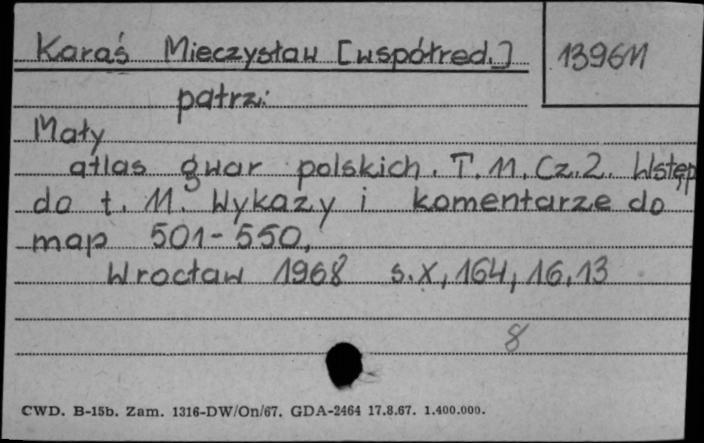 Karaś Mieczysław [współred.]
1396M
patrz:
Mały
atlas gwar polskich. T. 11. Cz. 2. Wstęp
do t. 11. Wykazy i komentarze do
map 501-550.
Wrocław 1968 s. X, 164, 16, 13
8
CWD. B-15b. Zam. 1316-DW/On/67. GDA-2464 17.8.67. 1.400.000.